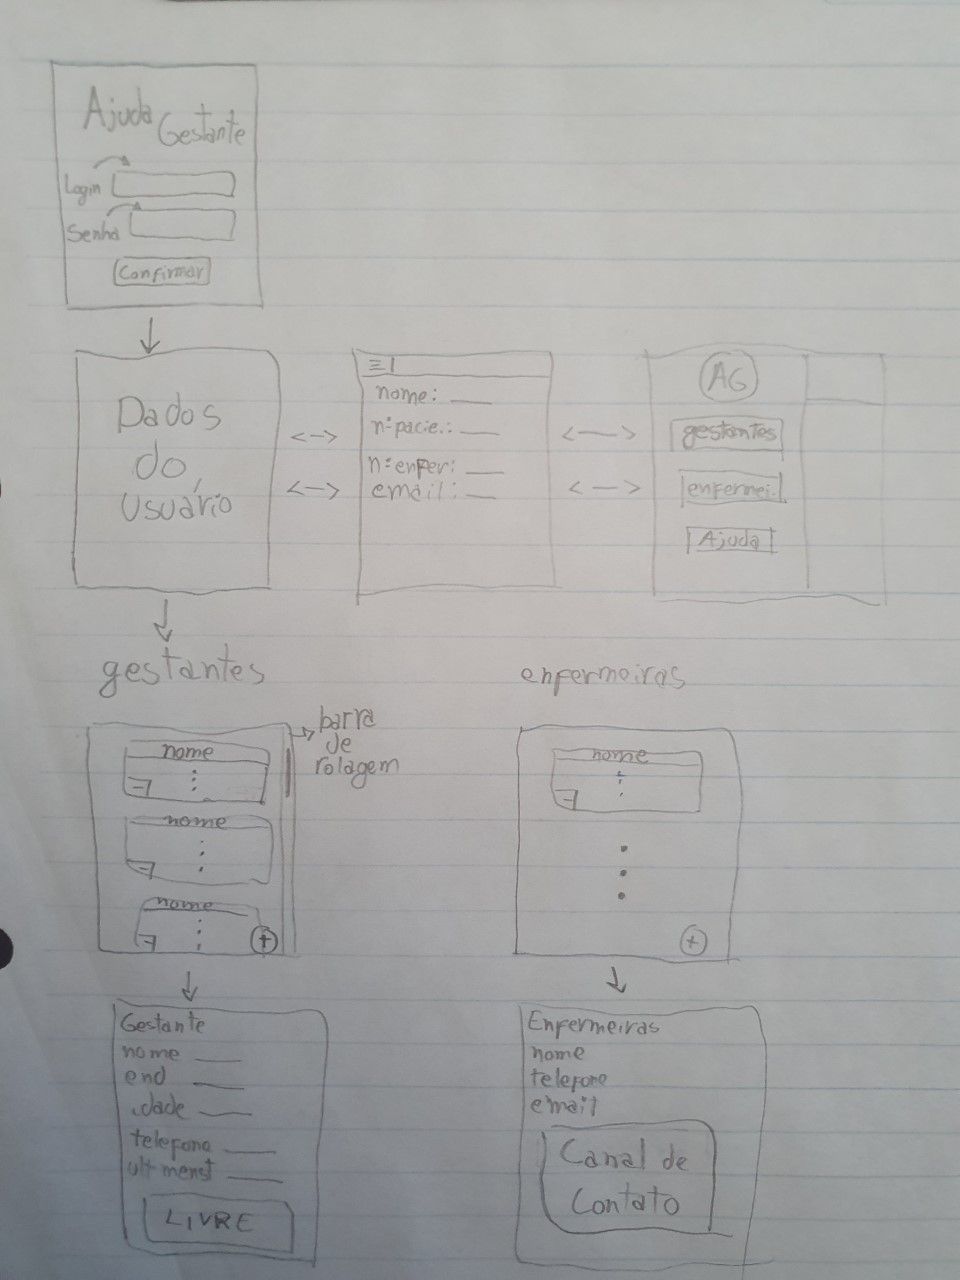 Ajuda
Gestante
Login
Senha
Confirmar
Dados
do
usuário
nome:
nº pacie.:
nº enfer:
email:
AG
gestantes
enfermei.
Ajuda
gestantes
enfermeiras
barra
de
rolagem
nome
nome
nome
nome
Gestante
nome
end
idade
telefone
ult menst
LIVRE
Enfermeiras
nome
telefone
email
Canal de
Contato